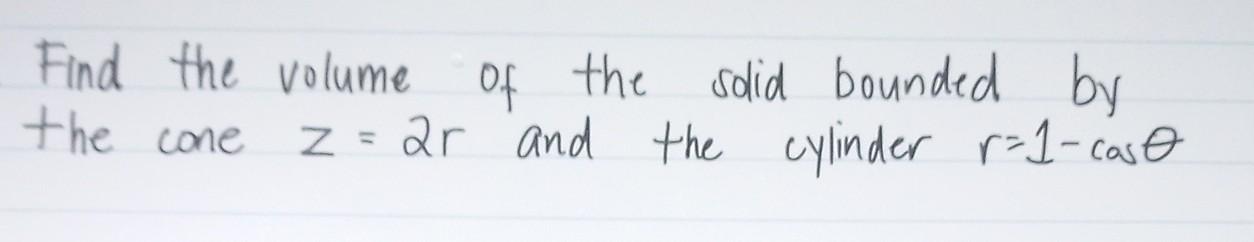 Find the volume of the solid bounded by
the cone z = 2r and the cylinder r=1-cosθ